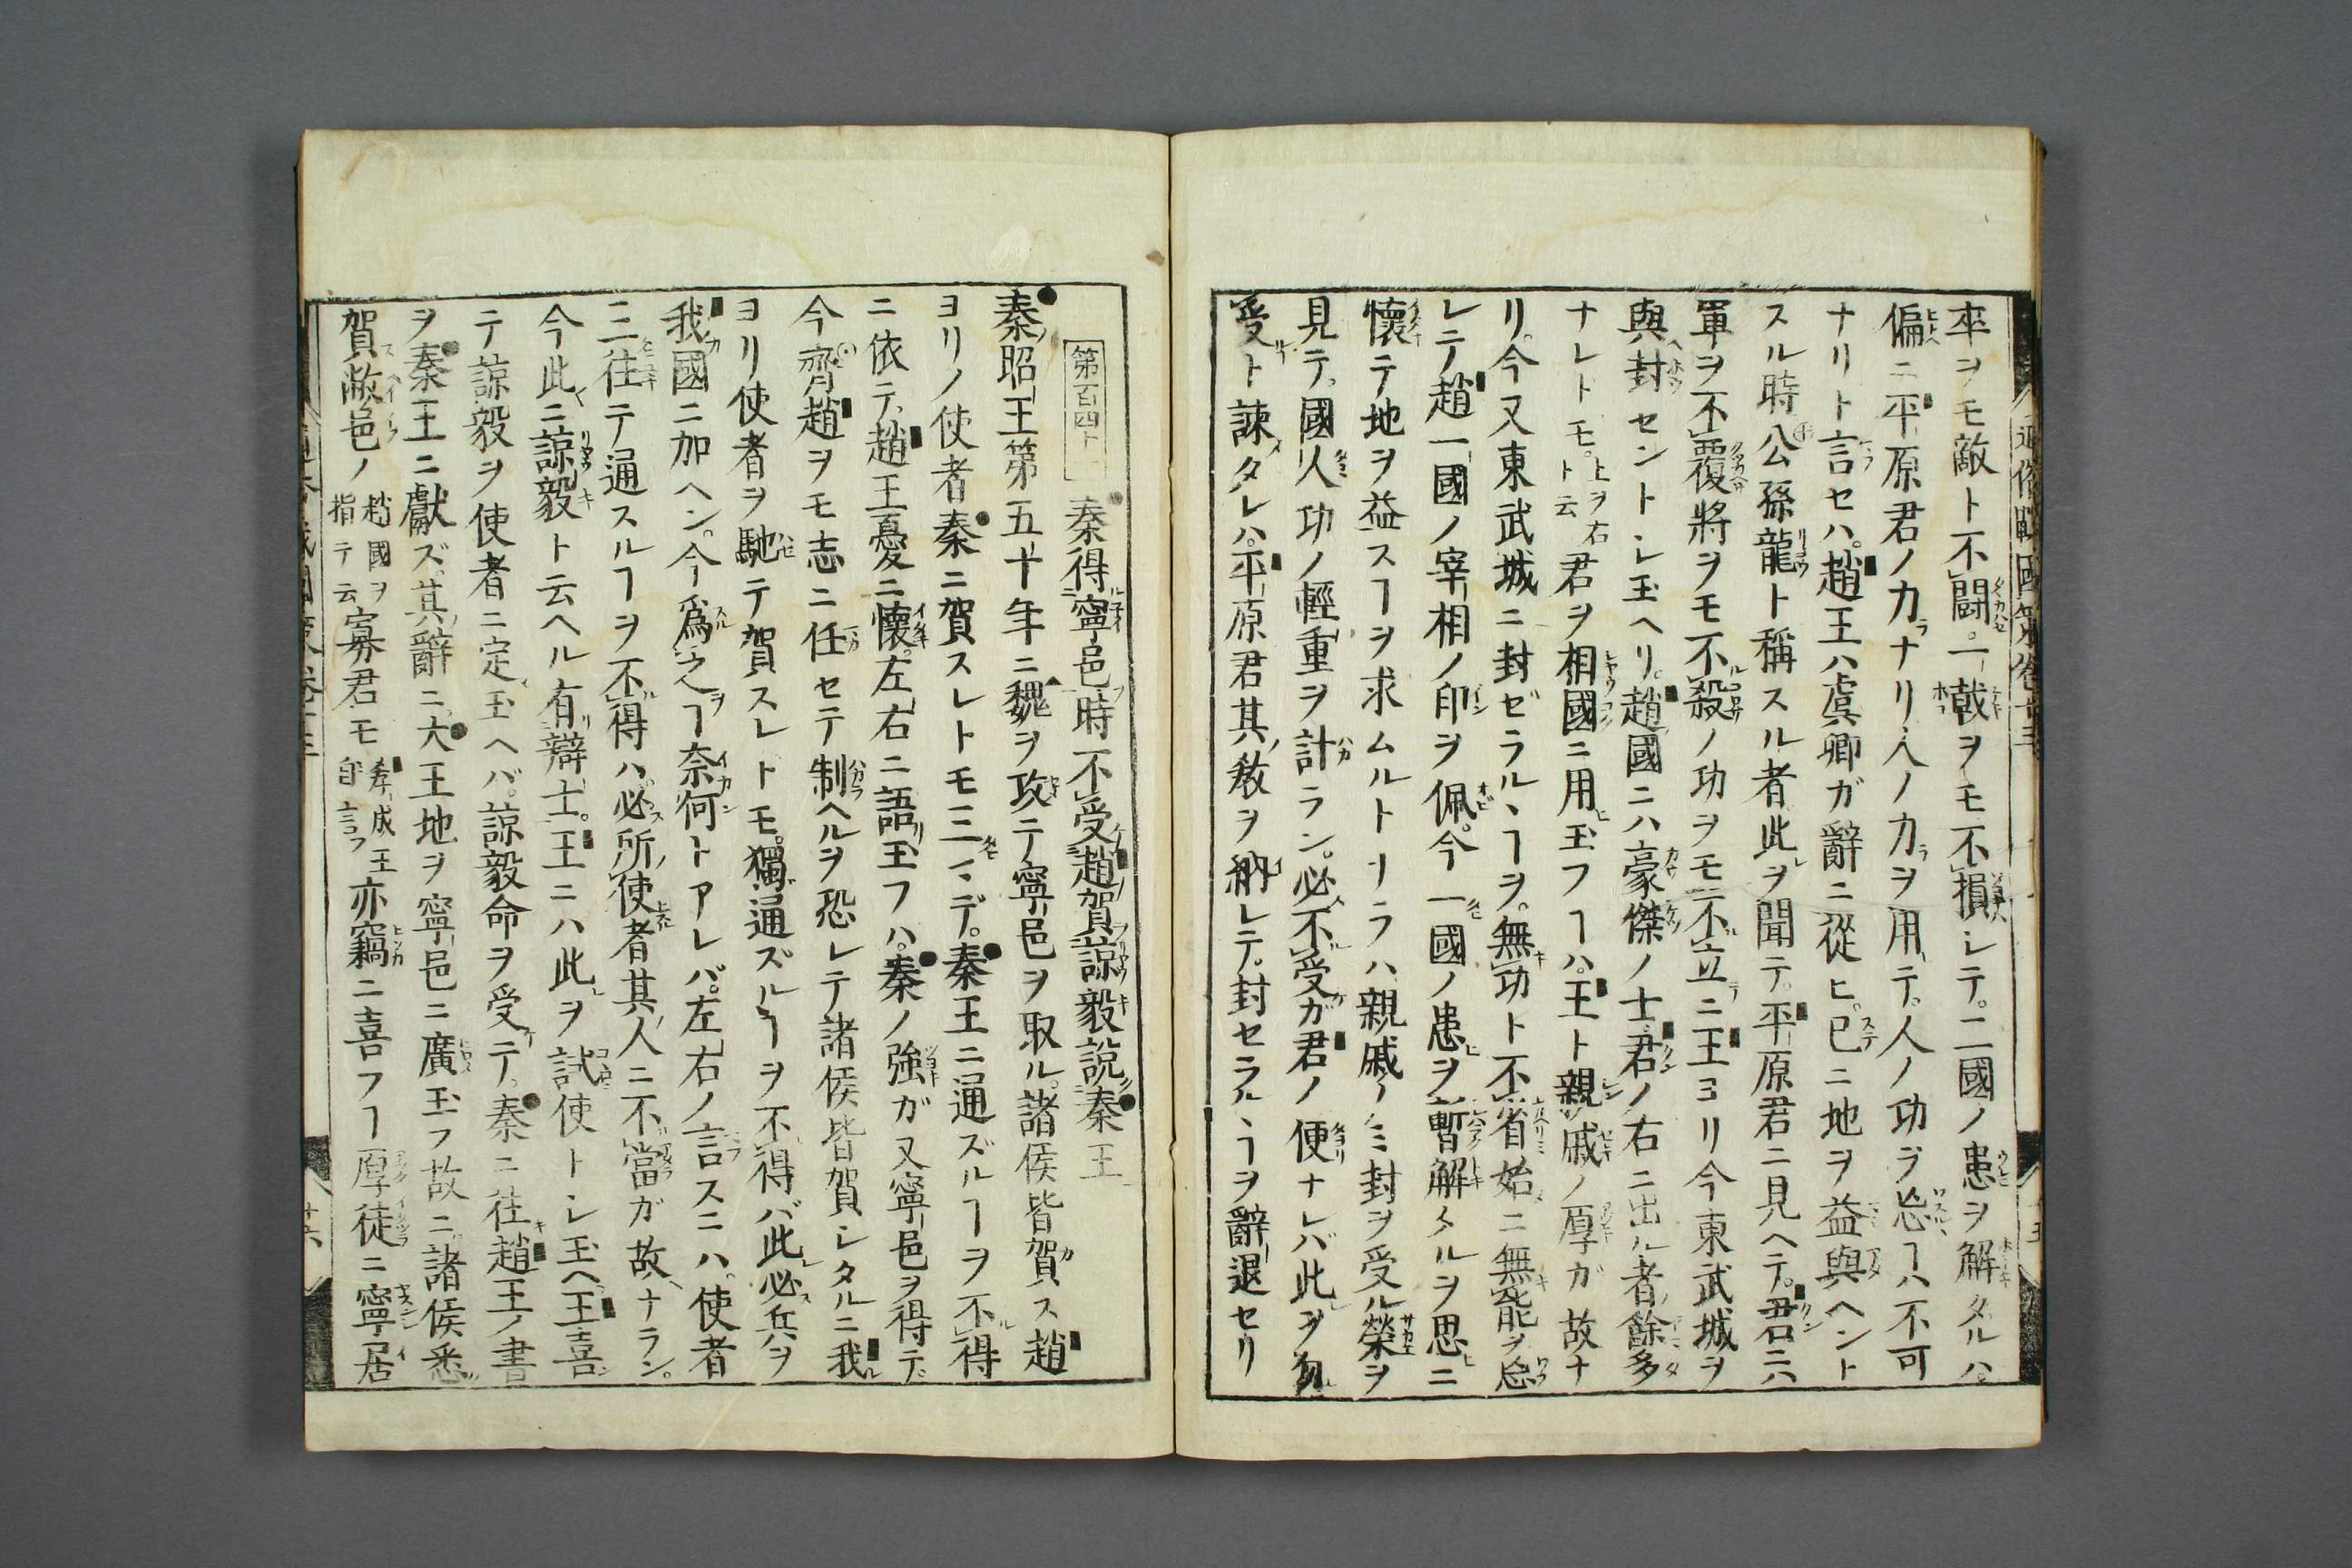 卒ヲモ敵ト不闘。一戟ヲモ不損シテ。二國ノ患ヲ解タルハ。
偏ニ平原君ノ力ナリ人ノ力ヲ用テ。人ノ功ヲ忘ヿハ不可
ナリト言セハ。趙王ハ虞卿ガ辭ニ從ヒ。已ニ地ヲ益與ヘント
スル時公孫龍ト稱スル者此ヲ聞テ。平原君ニ見ヘテ。君ニハ
軍ヲ不覆將ヲモ不殺ノ功ヲモ不立ニ王ヨリ今東武城ヲ
與封セントシ玉ヘリ。趙國ニハ豪傑ノ士君ノ右ニ出ル者餘多
ナレトモ。上ヲ右ト云君ヲ相國ニ用玉フヿハ。王ト親戚ノ厚ガ故ナ
リ。今又東武城ニ封ゼラルヽヿヲ。無功ト不省始ニ無能ヲ忘
レテ趙一國ノ宰相ノ印ヲ佩。今一國ノ患ヲ暫解タルヲ思ニ
懷テ地ヲ益スヿヲ求ムルトナラハ親戚ノミ封ヲ受ル榮ヲ
見テ。國人功ノ輕重ヲ計ラン。必不受ガ君ノ便ナレバ此ヲ勿
受ト諫タレハ。平原君其敎ヲ納レテ。封セラルヽヿヲ辭退セリ
第百四十一 秦得寧邑時不受趙賀諒毅説秦王
秦昭王第五十年ニ魏ヲ攻テ寧邑ヲ取ル。諸侯皆賀ス趙
ヨリノ使者秦ニ賀スレトモ三マデ。秦王ニ通ズルヿヲ不得
ニ依テ。趙王憂ニ懷。左右ニ語玉フハ。秦ノ強ガ又寧邑ヲ得テ。
今齊趙ヲモ志ニ任セテ制ヘルヲ恐レテ諸侯皆賀シタルニ我
ヨリ使者ヲ馳テ賀スレトモ。獨通ズルヿヲ不得バ此必兵ヲ
我國ニ加ヘン。今爲之ヿ奈何トアレバ。左右ノ言スニハ。使者
三往テ通スルヿヲ不得ハ。必所使者其人ニ不當ガ故ナラン。
今此ニ諒毅ト云ヘル有辯士。王ニハ此ヲ試使トシ玉ヘ王喜
テ諒毅ヲ使者ニ定玉ヘバ。諒毅命ヲ受テ。秦ニ往趙王ノ書
ヲ秦王ニ獻ズ。其辭ニ大王地ヲ寧邑ニ廣玉フ故ニ。諸侯悉
賀敝邑ノ趙國ヲ指テ云寡君モ孝成王自言フ亦竊ニ喜フヿ厚徒ニ寧居